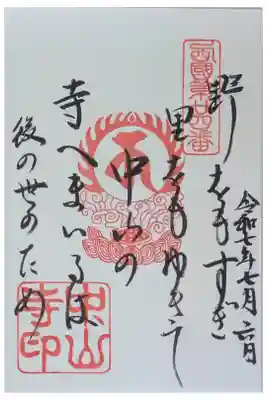 西國第廿四番
令和七年七月六日
野をもすぎ
里をもゆきて
中山の
寺へまいるは
後の世のため
中山
寺印